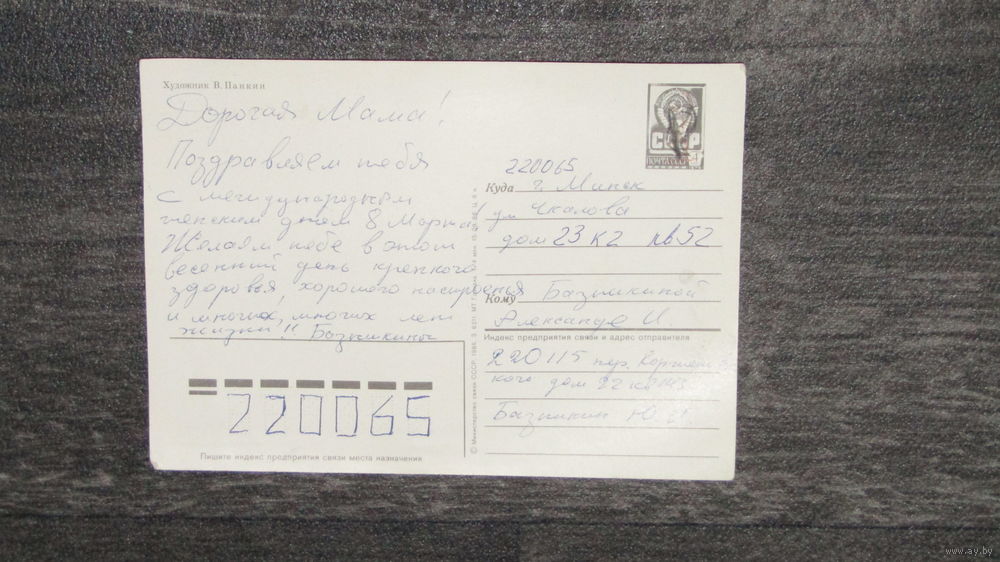 Художник В. Панкин
Дорогая Мама!
Поздравляем тебя
с международным
женским днем 8 Марта!
Желаем тебе в этот
весенний день крепкого
здоровья, хорошего настроения
и многих, многих лет
жизни!! Базышкины
СССР
ПОЧТА
220065
Куда г. Минск
ул Чкалова
дом 23 к2 кв 52
Кому Базышкиной
Александре И.
Индекс предприятия связи и адрес отправителя
220115 пер.
дом 22 кв
Базышкин Ю. И.
220065
Пишите индекс предприятия связи места назначения
© Министерство связи СССР. 1988.
www.ay.by